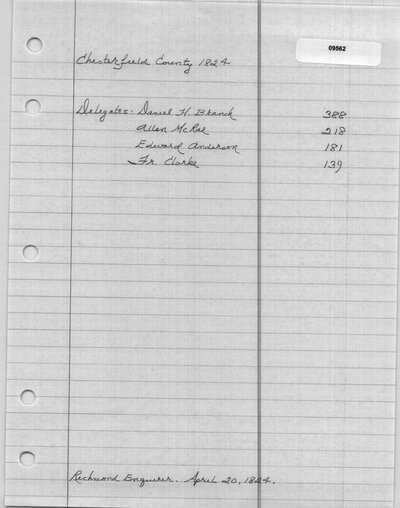 09562
Chesterfield County 1824
Delegates: Daniel H. Branch 388
Allen McRae 218
Edward Anderson 181
Fr. Clarke 139
Richmond Enquirer. April 20, 1824.